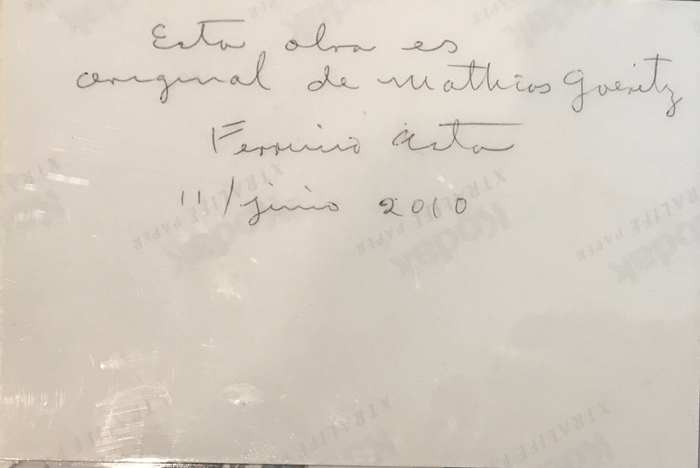 Esta obra es
original de Mathias Goeritz
Ferruccio Asta
11/junio 2010
Kodak
XTRALIFE PAPER
Kodak
XTRALIFE PAPER
Kodak
XTRALIFE PAPER
Kodak
XTRALIFE PAPER